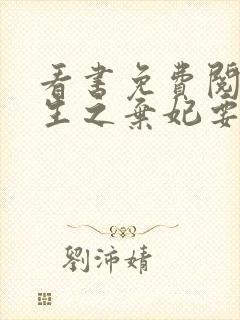 看書免費閱
生之棄妃要
劉沛婧